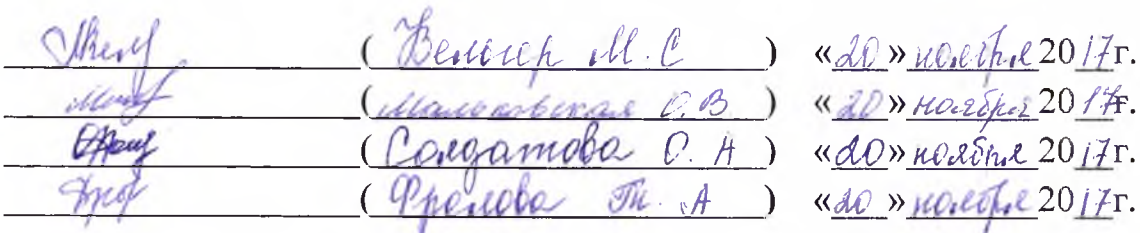 ( М. С ) «20» ноября 2017г.
( О.В ) «20» ноября 2017г.
( Солдатова О. А ) «20» ноября 2017г.
( Фролова Т. А ) «20» ноября 2017г.